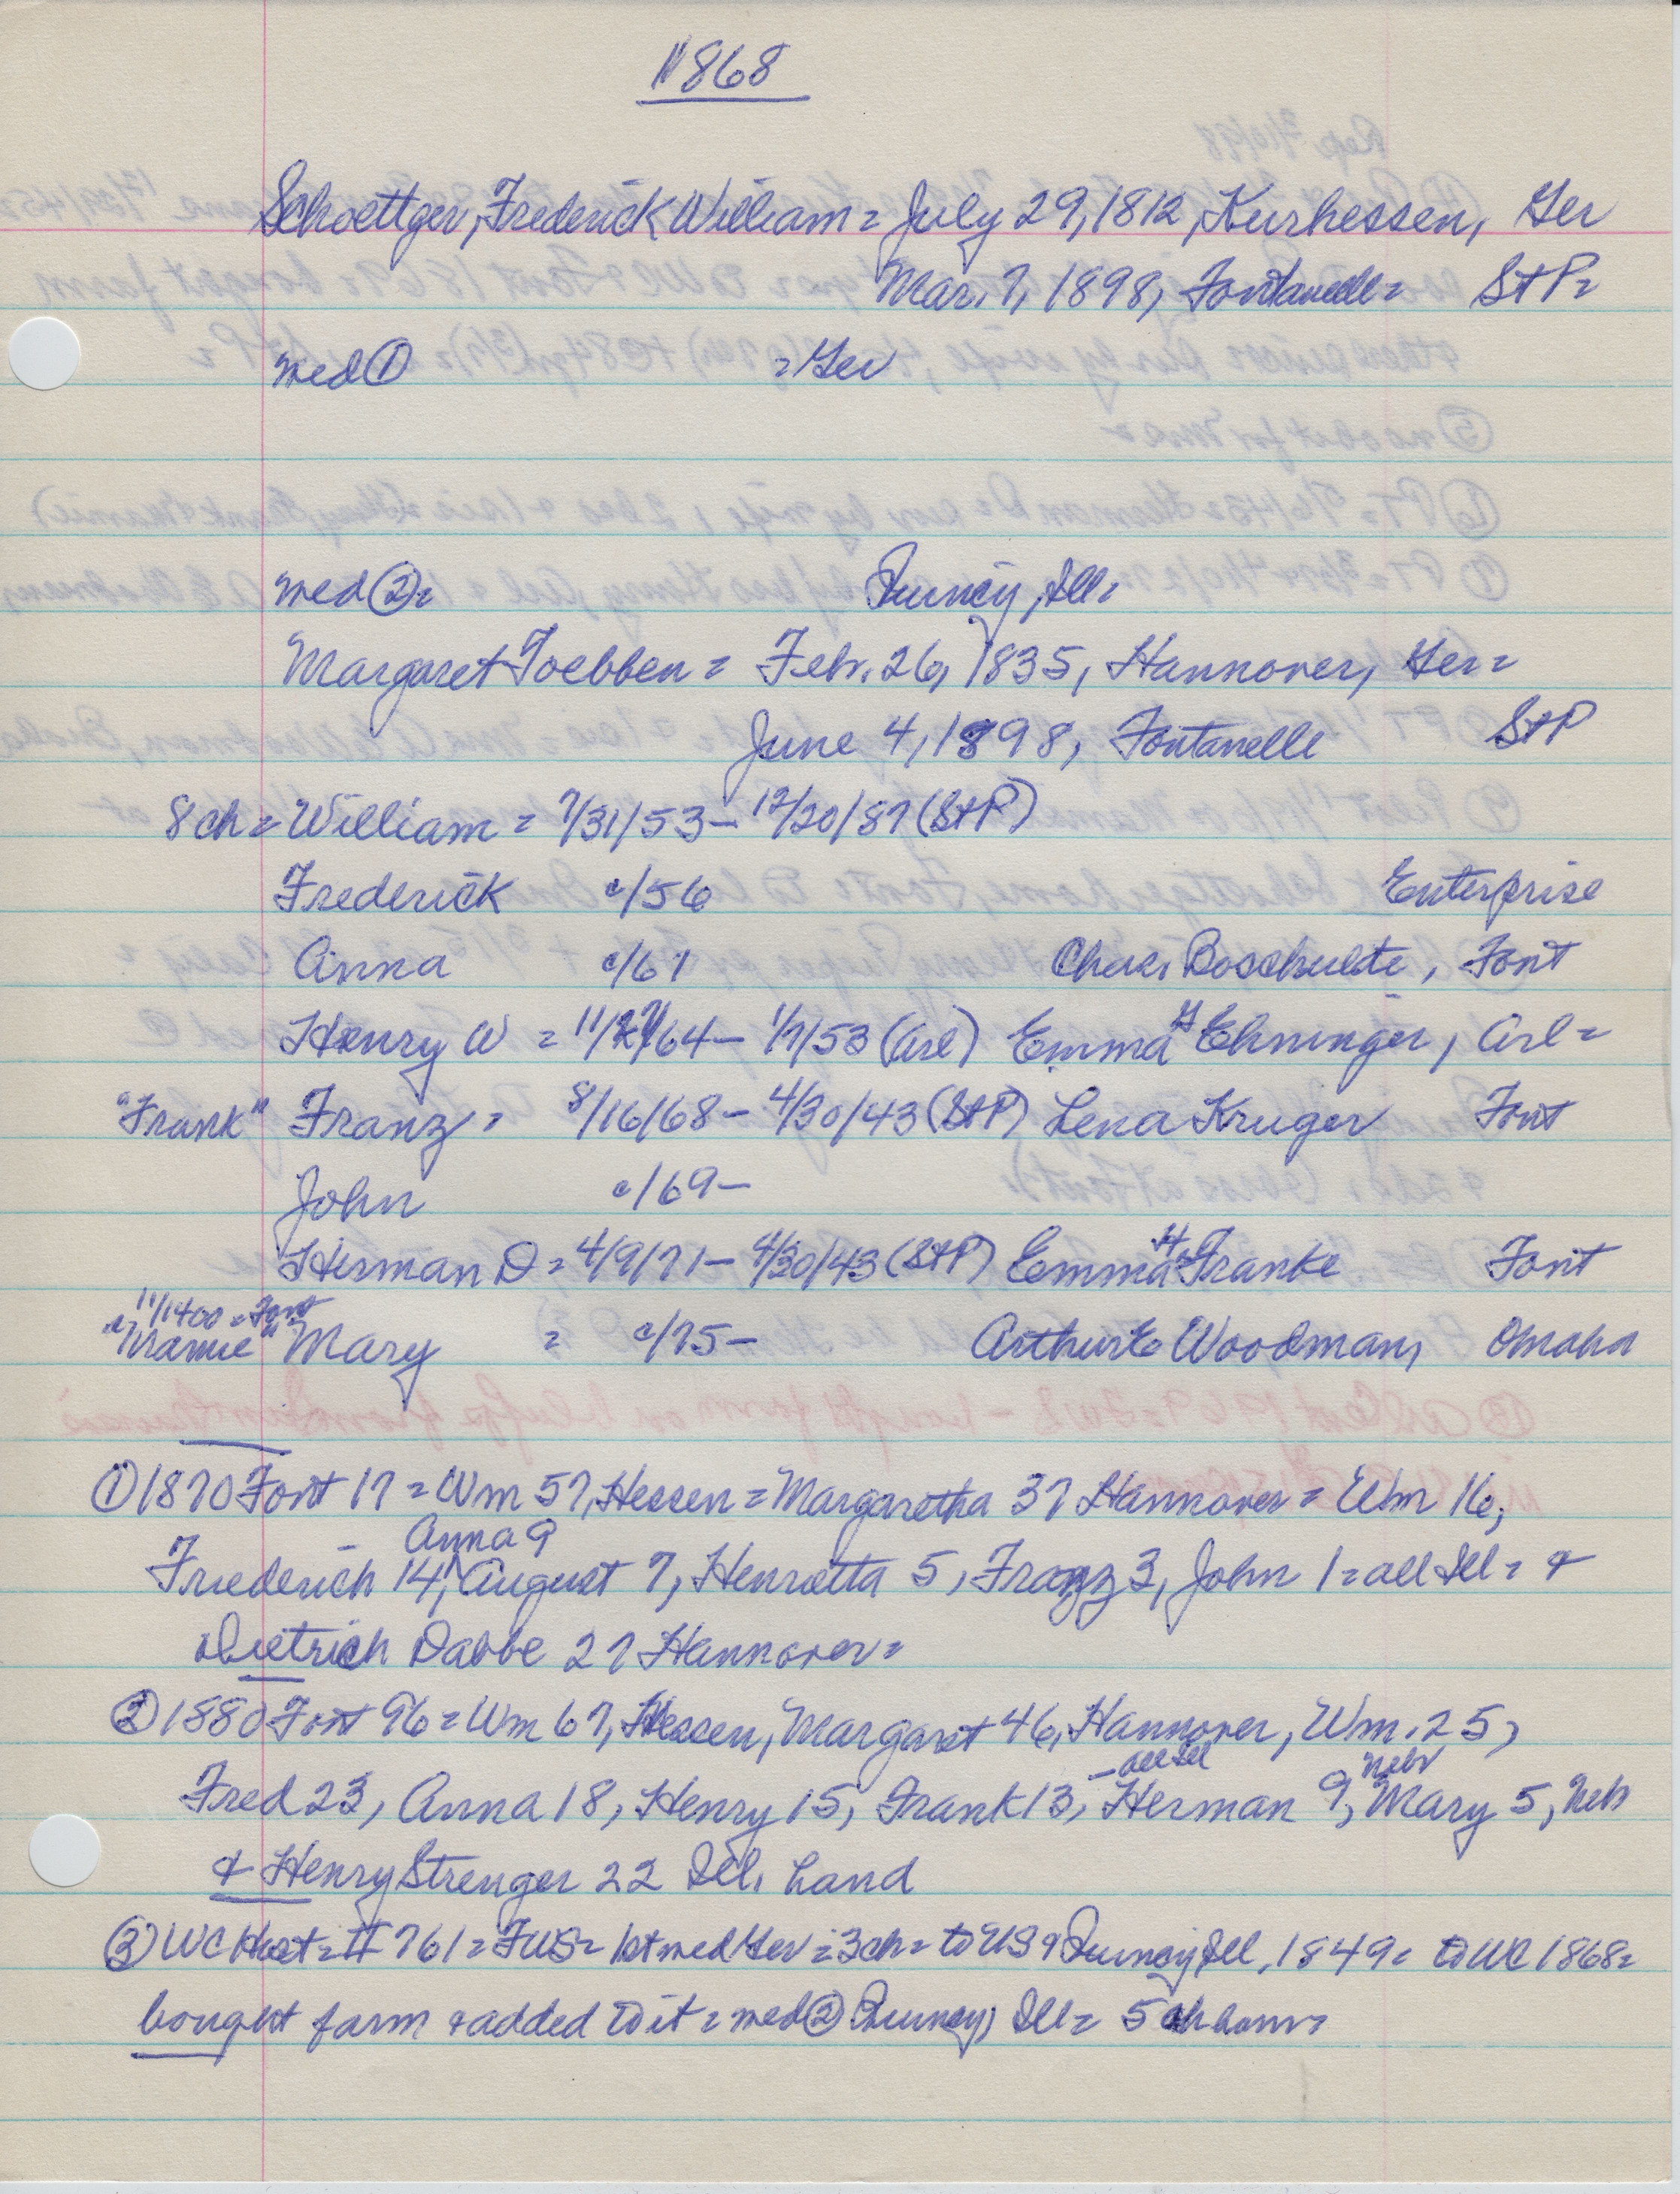 1868
Schoettger, Frederick William = July 29, 1812, Kurhessen, Ger
Mar. 7, 1898, Fontanelle = St P =
med ① = Ger
med ② = Quincy, Ill =
Margaret Toebben = Feb. 26, 1835, Hannover, Ger =
June 4, 1898, Fontanelle St P
8 ch = William = 7/31/53 – 12/20/87 (St P)
Frederick c/56 Enterprise
Anna c/61 Chas. Boschulte, Font
Henry W = 11/27/64 – 1/7/53 (Arl) Emma G Ehninger, Arl =
"Frank" Franz = 8/16/68 – 4/30/43 (St P) Lena Kruger Font
John c/69 –
Herman D = 4/9/71 – 4/30/43 (St P) Emma H. Franke Font
11/1400 = Font
"Mamie" Mary = c/75 – Arthur E Woodman, Omaha
① 1870 Font 17 = Wm 57, Hessen = Margaretha 37 Hannover = Wm 16,
Anna 9
Friederich 14, August 7, Henrietta 5, Franz 3, John 1 = all Ill = &
Dietrich Dabbe 27 Hannover =
② 1880 Font 96 = Wm 67, Hessen, Margaret 46, Hannover, Wm. 25,
– all Ill Nebr
Fred 23, Anna 18, Henry 15, Frank 13, Herman 9, Mary 5, Neb
& Henry Strenger 22 Ill. hand
③ WC Hist = II 761 = FWS = 1st med Ger = 3 ch = to US & Quincy Ill, 1849 = to WC 1868 =
bought farm & added to it = med ② Quincy, Ill = 5 ch born =